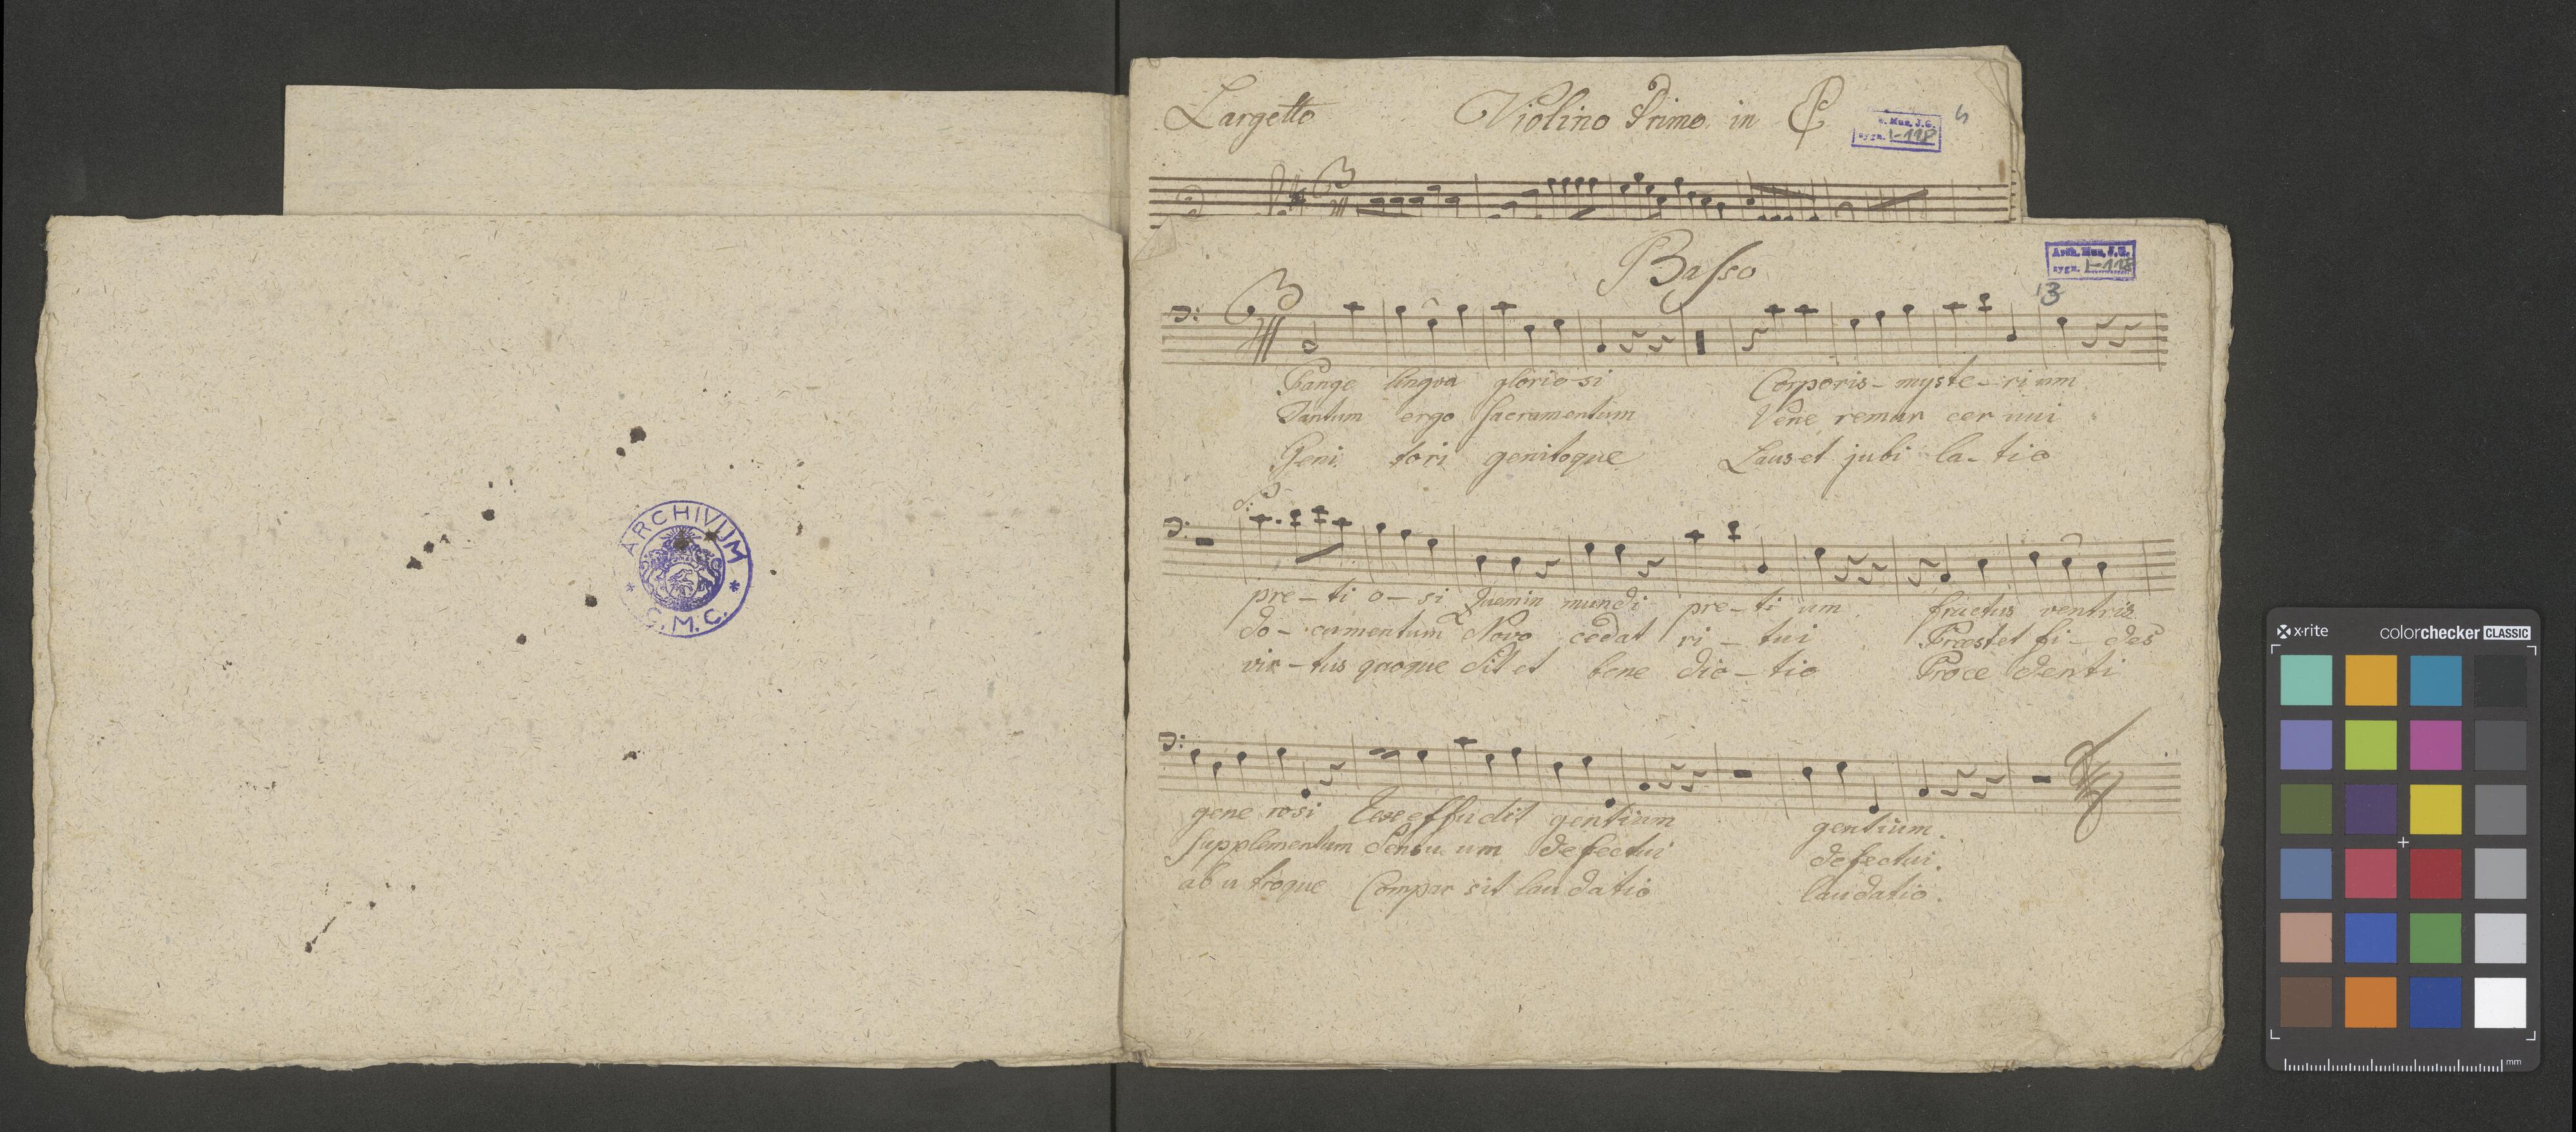 ARCHIVUM
* C.M.C. *
Largetto Violino Primo in C
Mus. J.G.
sygn. I-118
Basso
Arch. Mus. J.G.
sygn. I-118
13
3
Pange lingva glorio-si Corporis- myste-rium
Tantum ergo Sacramentum Vene remur cer nui
Geni tori genitoque Laus et jubi la-tio
pre-ti o-si Quemin mundi pre-ti um fructus ventris
do-cumentum Novo cedat ri-tui Præstet fi-des
vir-tus quoque Sit et bene dic-tio Proce denti
gene rosi Rex effudit gentium gentium.
Supplementum Sensu um defectui defectui.
ab u troque Compar sit lau datio laudatio.
x-rite colorchecker CLASSIC
mm